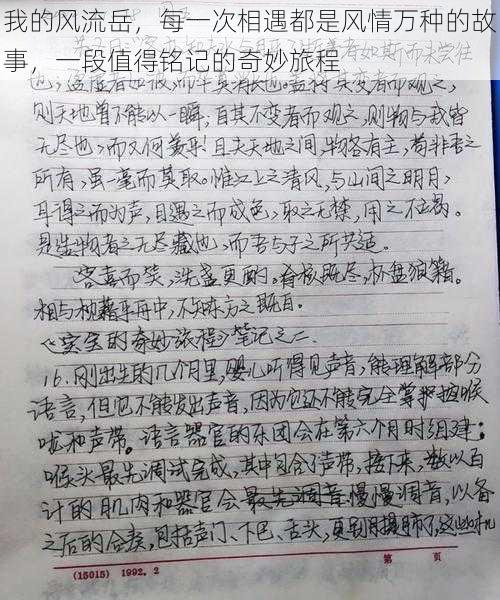 我的风流岳，每一次相遇都是风情万种的故
事，一段值得铭记的奇妙旅程
而未尝往
也，盈虚者如彼，而卒莫消长也。盖将其变者而观之，
则天地曾不能以一瞬；自其不变者而观之，则物与我皆
无尽也，而又何羡乎！且夫天地之间，物各有主，苟非吾之
所有，虽一毫而莫取。惟江上之清风，与山间之明月，
耳得之而为声，目遇之而成色，取之无禁，用之不竭。
是造物者之无尽藏也，而吾与子之所共适。
客喜而笑，洗盏更酌。肴核既尽，杯盘狼籍。
相与枕藉乎舟中，不知东方之既白。
《宝宝的奇妙旅程》笔记之二
16.刚出生的几个月里，婴儿听得见声音，能理解部分
语言，但它不能发出声音，因为它还不能完全掌护控喉
咙和声带。语言器官的乐团会在第六个月时组建：
喉头最先调试完成，其中包含了声带，接下来，数以百
计的肌肉和器官会最先调音慢慢调音，以备
之后的合奏，包括声门、下巴、舌头，
(15015) 1992. 2
第 页